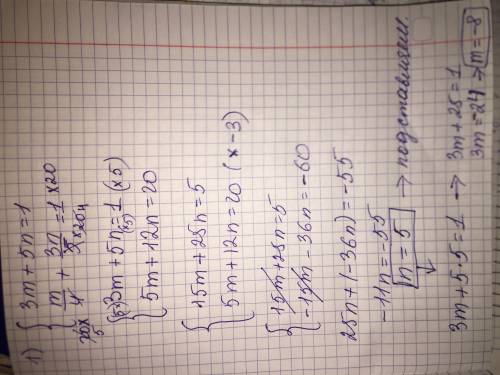 1) { 3m + 5n = 1
{ m/4 + 3n/5 = 1 x20
{ 3m + 5n = 1 (x5)
{ 5m + 12n = 20
{ 15m + 25n = 5
{ 5m + 12n = 20 (x -3)
{ 15m + 25n = 5
{ -15m - 36n = -60
25n + (-36n) = -55
-11n = -55
n = 5 → подставляем
3m + 5·5 = 1 → 3m + 25 = 1
3m = -24 ⇒ m = -8